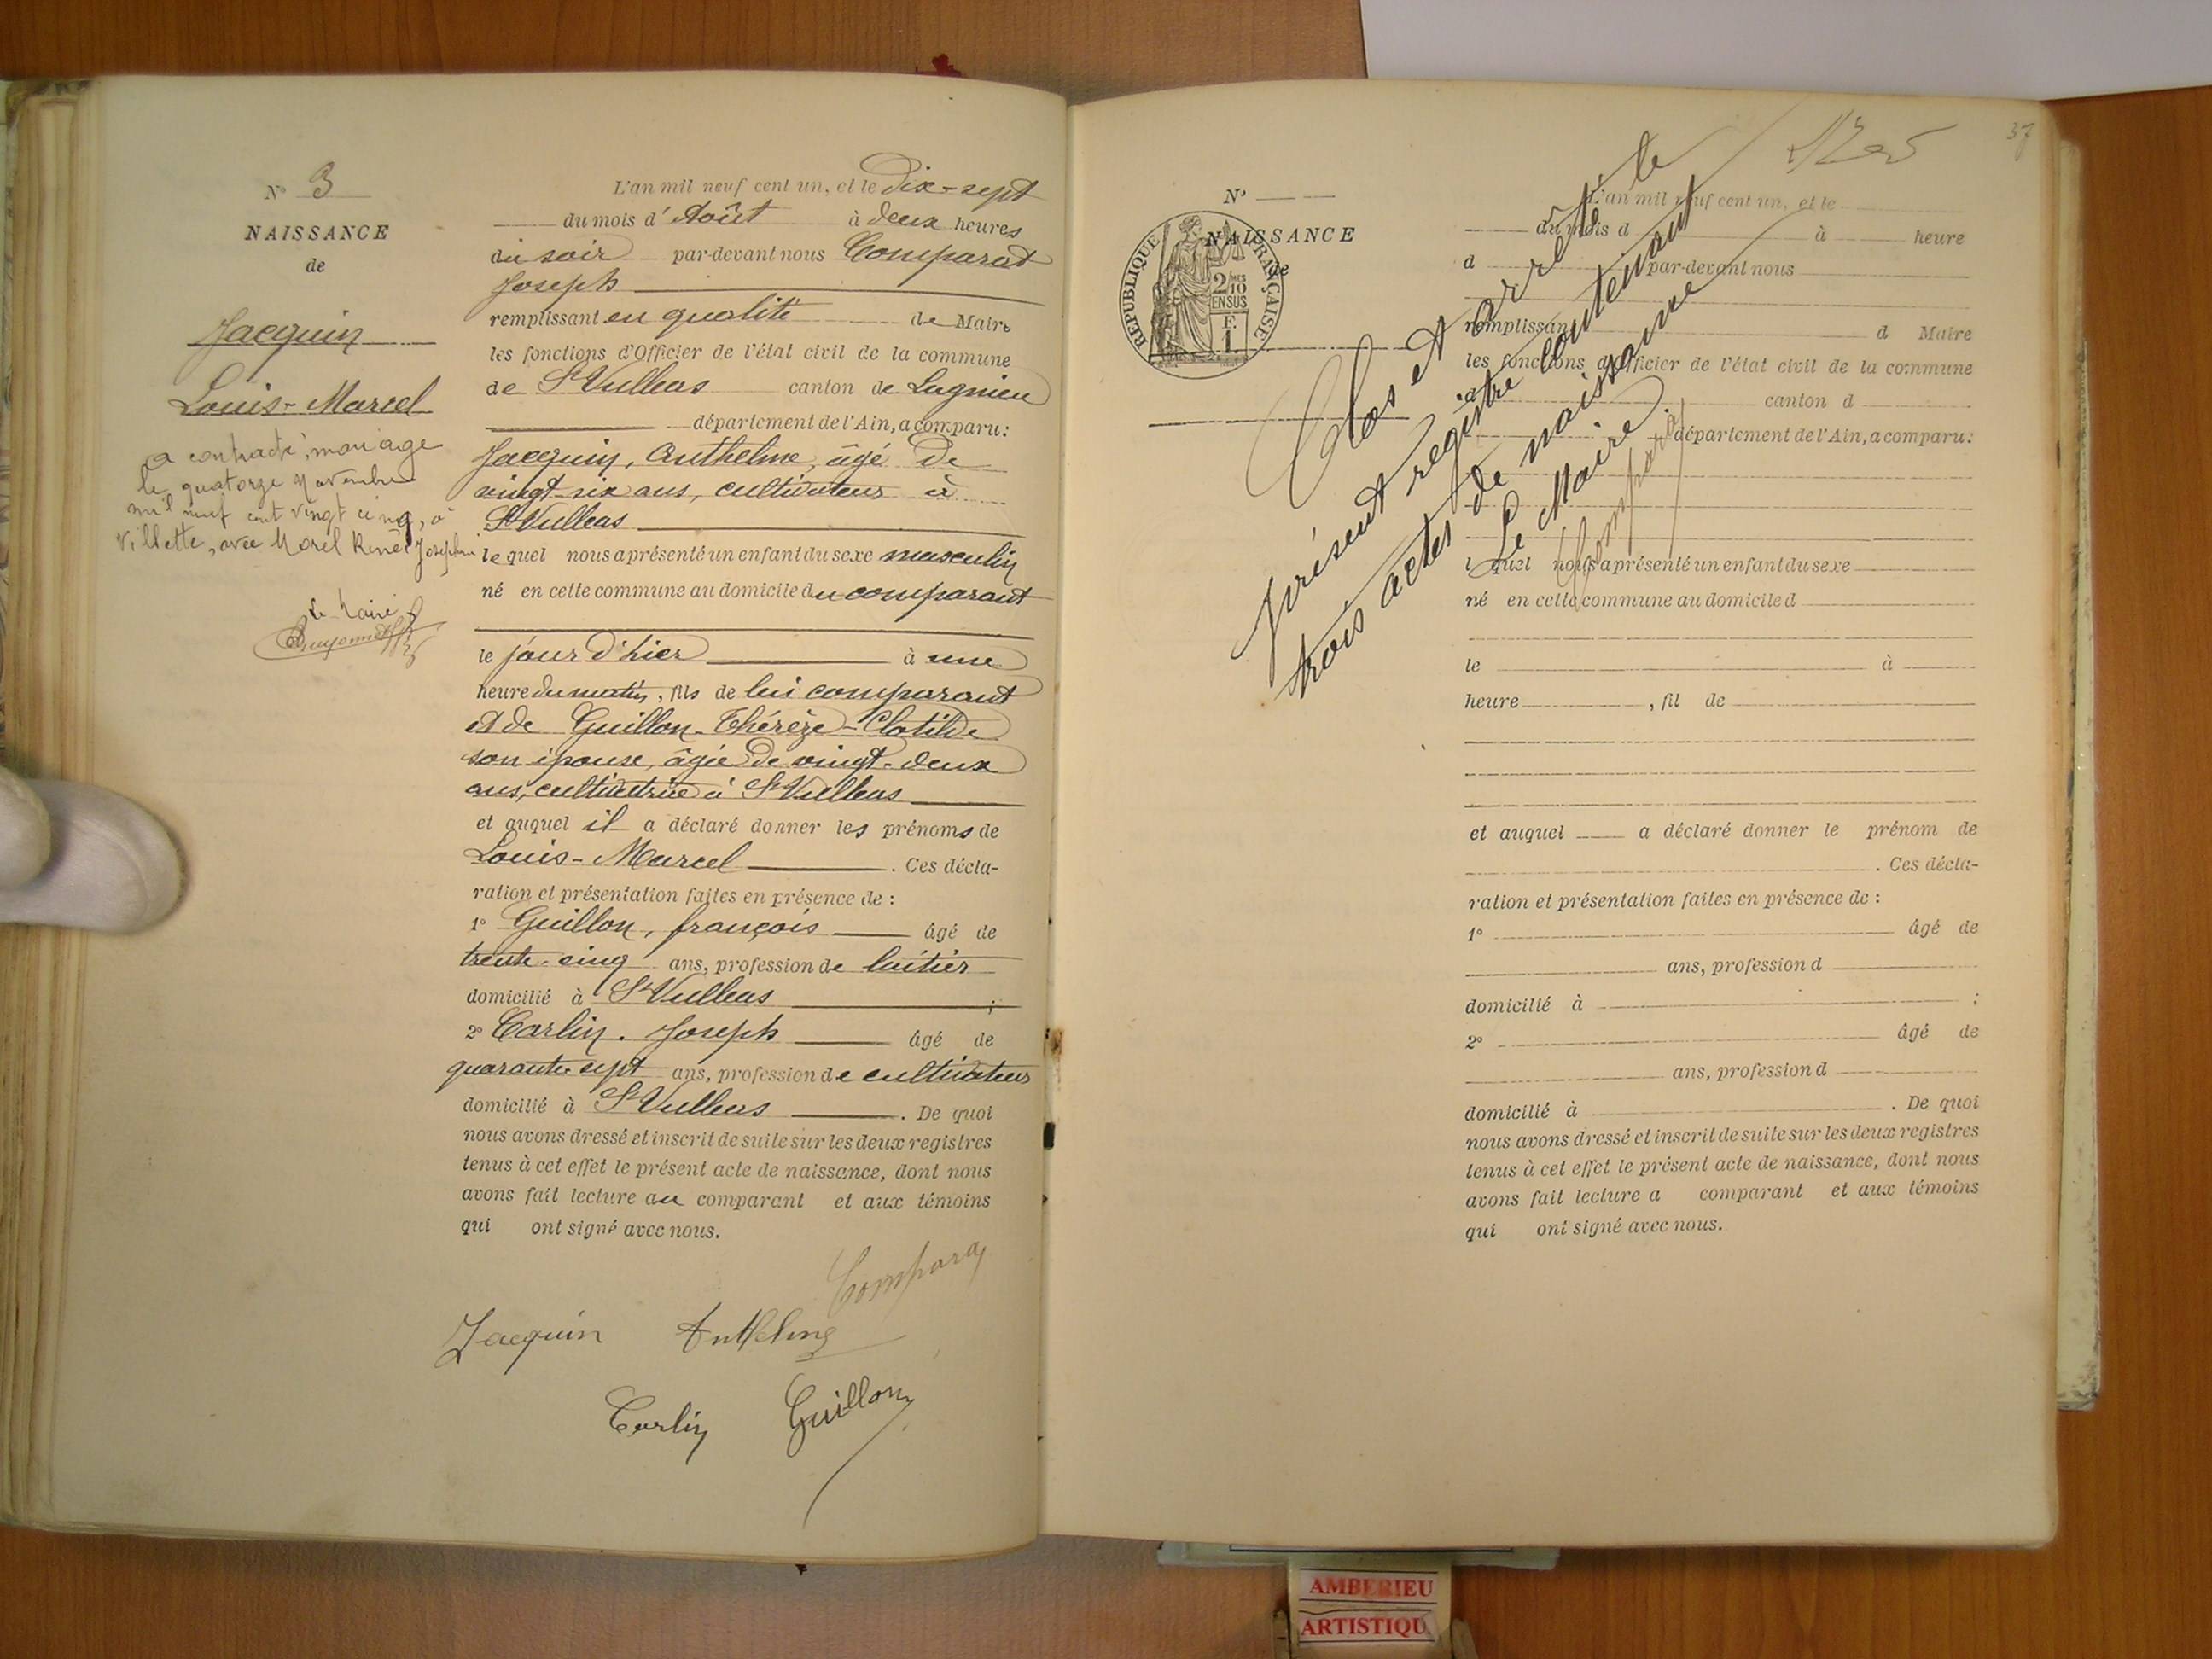 N° 3
NAISSANCE
de
Jacquin
Louis-Marcel
a contracté mariage
le quatorze Novembre
mil neuf cent vingt cinq, à
Villette, avec Morel Renée Joséphine
Le Maire
L'an mil neuf cent un, et le Dix-sept
du mois d'Août à deux heures
du soir par-devant nous Comparat
Joseph
remplissant en qualité de Maire
les fonctions d'Officier de l'état civil de la commune
de St Vulbas canton de Lagnieu
département de l'Ain, a comparu:
Jacquin, Anthelme, âgé de
vingt-six ans, cultivateur à
St Vulbas
lequel nous a présenté un enfant du sexe masculin
né en cette commune au domicile du comparant
le jour d'hier à une
heure du matin, fils de lui comparant
et de Guillon Thérèze-Clotilde
son épouse, âgée de vingt-deux
ans, cultivatrice à St Vulbas
et auquel il a déclaré donner les prénoms de
Louis-Marcel. Ces décla-
ration et présentation faites en présence de :
1° Guillon, françois âgé de
trente-cinq ans, profession de laitier
domicilié à St Vulbas ;
2° Carlin. Joseph âgé de
quarante-sept ans, profession de cultivateur
domicilié à St Vulbas. De quoi
nous avons dressé et inscrit de suite sur les deux registres
tenus à cet effet le présent acte de naissance, dont nous
avons fait lecture au comparant et aux témoins
qui ont signé avec nous.
Comparat
Jacquin Anthelme
Carlin Guillon
37
N°
NAISSANCE
de
REPUBLIQUE FRANÇAISE
2/10 EN SUS
F.
1
Clos et arrêté le
présent registre contenant
trois actes de naissance
Le Maire
Comparat
L'an mil neuf cent un, et le
du mois d à heure
d par-devant nous
remplissant d Maire
les fonctions d'Officier de l'état civil de la commune
d canton d
département de l'Ain, a comparu:
l quel nous a présenté un enfant du sexe
né en cette commune au domicile d
le à
heure , fil de
et auquel a déclaré donner le prénom de
. Ces décla-
ration et présentation faites en présence de :
1° âgé de
ans, profession d
domicilié à ;
2° âgé de
ans, profession d
domicilié à . De quoi
nous avons dressé et inscrit de suite sur les deux registres
tenus à cet effet le présent acte de naissance, dont nous
avons fait lecture a comparant et aux témoins
qui ont signé avec nous.
AMBERIEU
ARTISTIQU